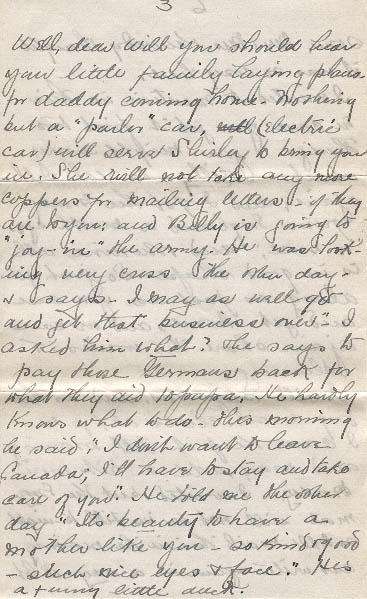 3
Well, dear Will you should hear
your little family laying plans
for daddy coming home - Nothing
but a "parlor" car, will (Electric
car) will serve Shirley to bring you
in. She will not take any more
coppers for mailing letters - if they
are to you; and Billy is going to
"joy-in" the army. He was look-
ing very cross the other day -
& says - I may as well go
and get that business over" - I
asked him what? He says to
pay those Germans back for
what they did to papa. He hardly
knows what to do - this morning
he said, "I don't want to leave
Canada; I'll have to stay and take
care of you". He told me the other
day "Its beauty to have a
mother like you - so kind & good
- such nice eyes & face". He is
a funny little duck.